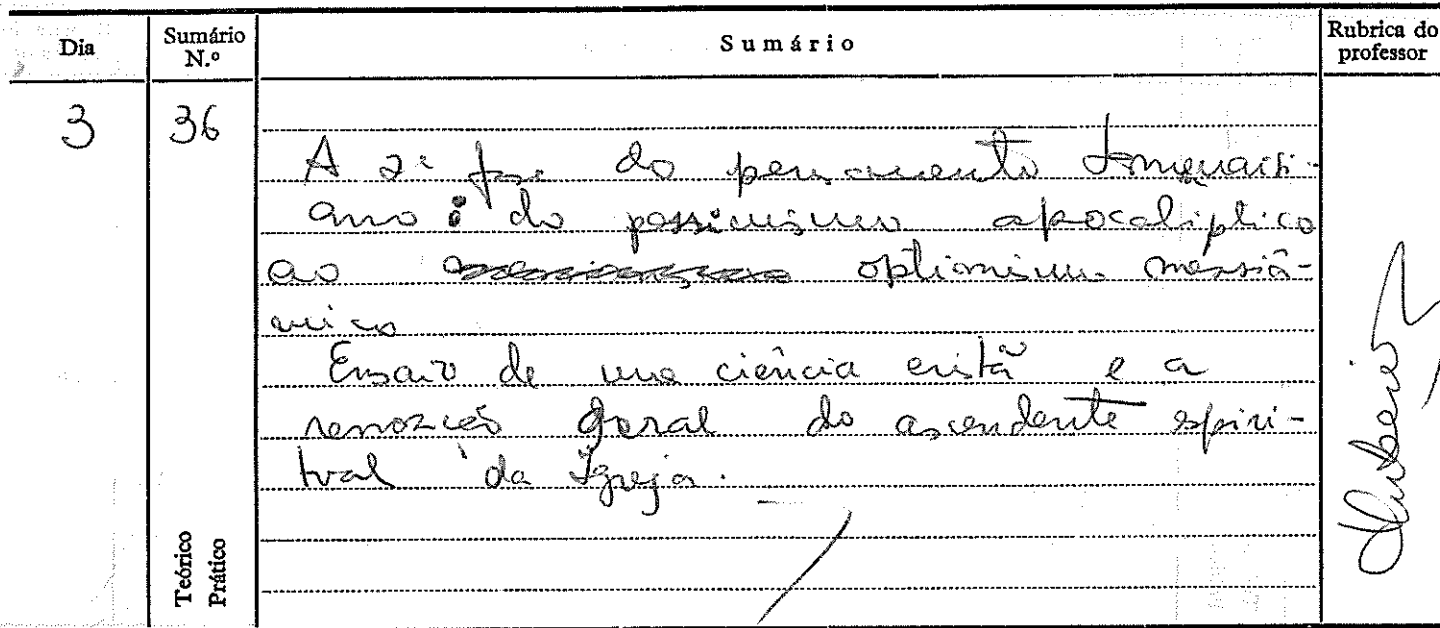 Dia
Sumário N.º
Sumário
Rubrica do professor
3
36
A 2ª fase do pensamento
ano: do pessimismo apocalíptico
ao optimismo messiâ-
nico
Ensaio de uma ciência cristã e a
renovação geral do ascendente espiri-
tual da Igreja.
Teórico
Prático